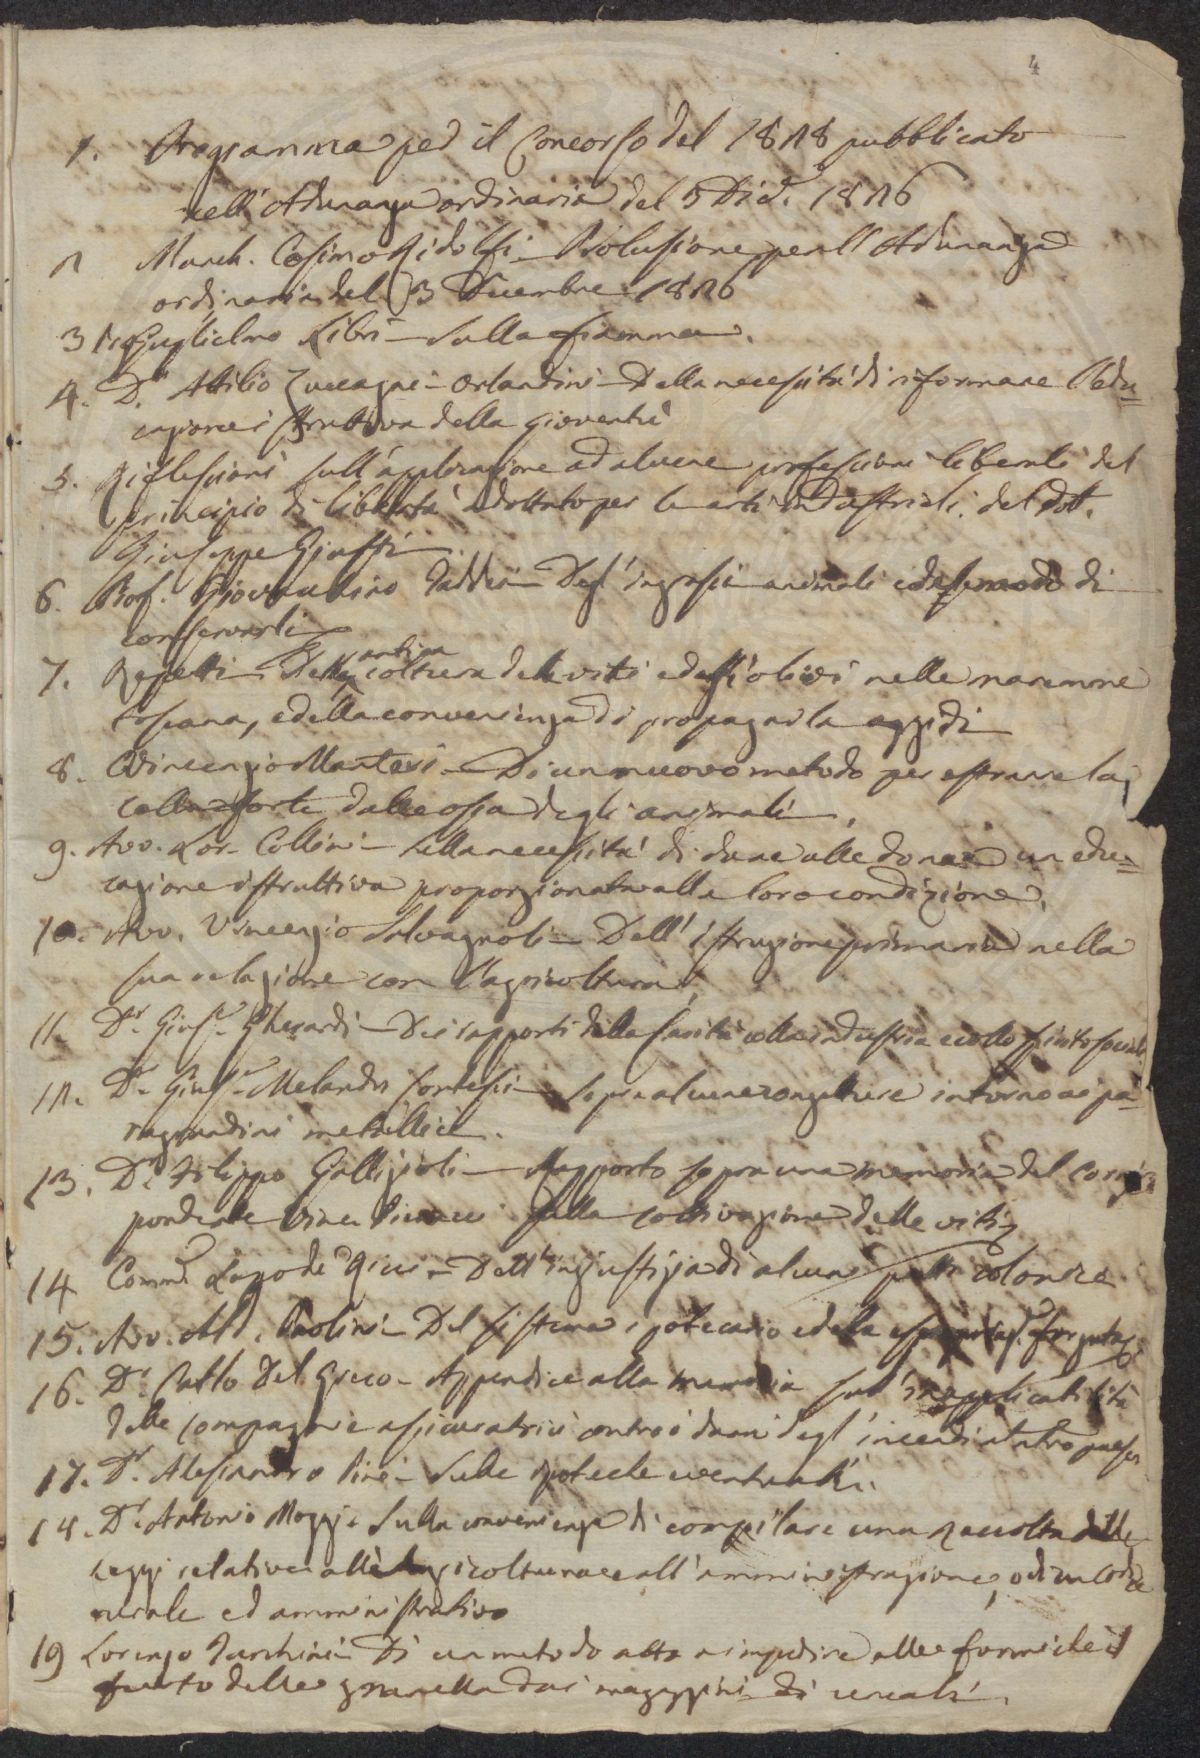 4
1. Programma per il Concorso del 1828 pubblicato
nell'Adunanza ordinaria del 3 Dic. 1826
2 March. Cosimo Ridolfi - Prolusione per l'Adunanza
ordinaria del 3 Dicembre 1826
3 Guglielmo Libri - Sulla fiamma.
4. D.r Attilio Zuccagni-Orlandini - Della necessità di riformare l'edu=
cazione istruttiva della gioventù
5. Riflessioni sull'applicazione ad alcune professioni liberali del
principio di libertà adottato per le arti industriali. del Dott.
Giuseppe Giusti
6. Prof. Gioacchino Taddei - Degl'ingrassi animali e del modo di
conservarli
7. Repetti - Della antica coltura delle viti e degli olivi nelle maremme
toscana, e della convenienza di propagarla oggidì
8. Vincenzio Manteri - Di un nuovo metodo per estrarre la
colla forte dalle ossa degli animali.
9. Avv. Lor. Collini - Sulla necessità di dare alle donne un edu=
cazione istruttiva proporzionata alla loro condizione.
10. Avv. Vincenzio Salvagnoli - Dell'istruzione primaria nella
sua relazione con l'agricoltura.
11. D.r Gius.e Gherardi - Dei rapporti della sanità colla industria e collo spirito sociale
12. D.r Gius.e Melandri Contessi - Sopra alcune congetture intorno ai pa=
ragrandini metallici.
13. D.r Filippo Gallizioli - Rapporto sopra una memoria del corris
pondente sulla coltivazione delle viti
14 Comm.r Lapo de' Ricci - Dell'ingiustizia di alcuni patti colonici
15. Avv. Ald. Paolini - Del sistema ipotecario e della
16. D.r Carlo Del Greco - Appendice alla memoria sull'inapplicabilità
delle compagnie assicuratrici contro i danni degl'incendi al nostro paese
17. D.r Alessandro Pini - Sulle ipoteche eventuali.
18. D.r Antonio Mozzi - Sulla convenienza di compilare una raccolta delle
leggi relative all'agricoltura e all'amministrazione, o di un codice
rurale ed amministrativo
19 Lorenzo Turchini - Di un metodo atto a impedire alle formiche il
furto delle granella dai magazzini di cereali.